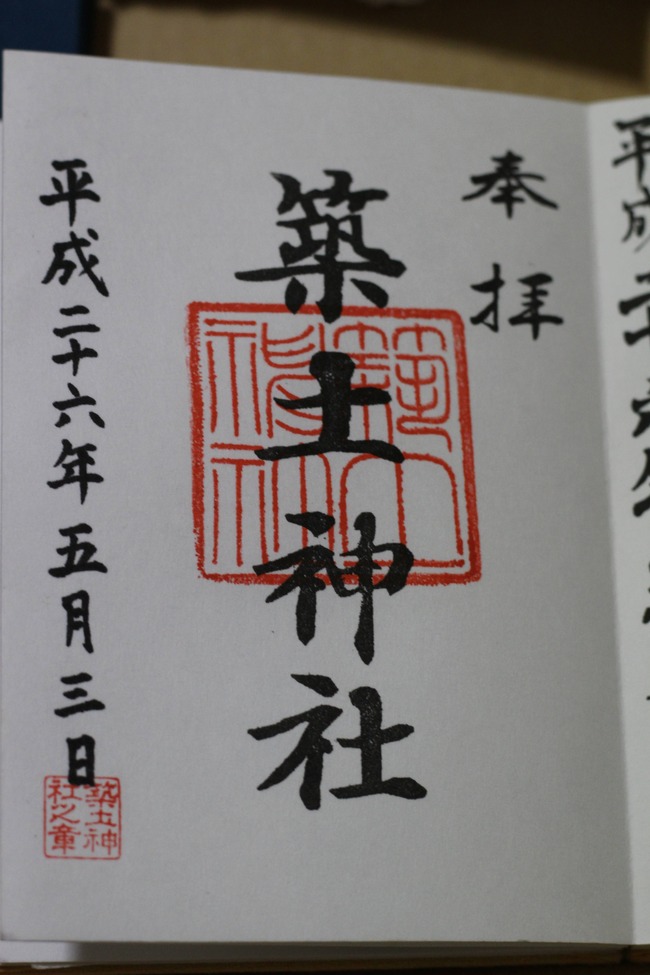 奉拝
築土神社
平成二十六年五月三日
築土神
社之章